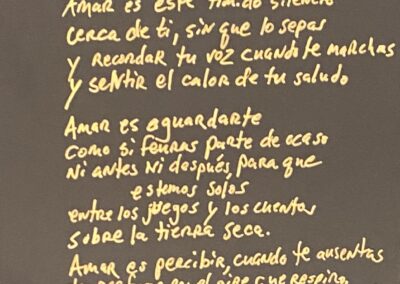 Amar es este tímido silencio
cerca de ti, sin que lo sepas
y recordar tu voz cuando te marchas
y sentir el calor de tu saludo
Amar es aguardarte
como si fueras parte de ocaso
ni antes ni después, para que
estemos solos
entre los juegos y los cuentos
sobre la tierra seca.
Amar es percibir, cuando te ausentas
en el aire que respiro,